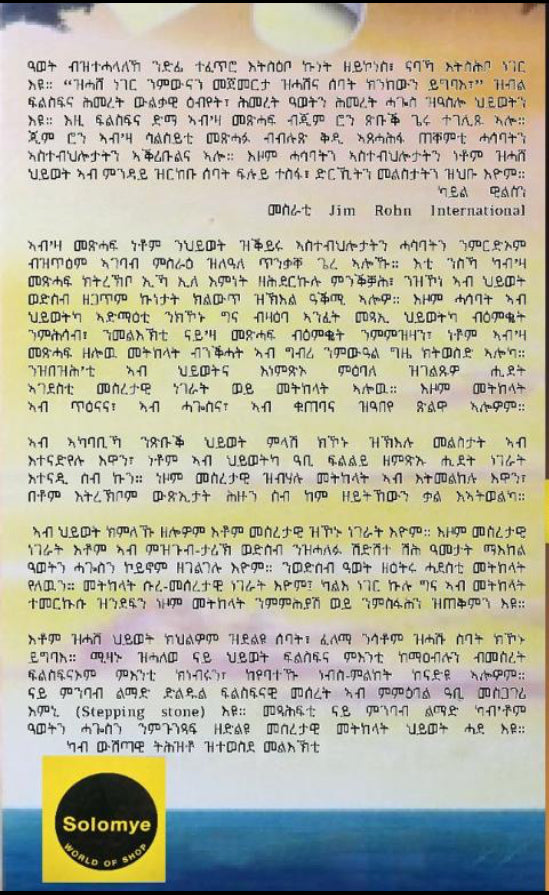 ዓወት ብዝተሓላለኸ ንድፊ ተፈጥሮ እትስዕቦ ኩነት ዘይኮነስ፣ ናባኻ እትስሕቦ ነገር
እዩ። “ዝሓሸ ነገር ንምውናን መጀመርታ ዝሓሸና ሰባት ክንከውን ይግባእ፣” ዝብል
ፍልስፍና ሕመረት ውልቃዊ ዕብየት፣ ሕመረት ዓወትን ሕመረት ሓጐስ ዝዓስሎ ህይወትን
እዩ። እዚ ፍልስፍና ድማ ኣብ'ዛ መጽሓፍ ብጂም ሮን ጽቡቕ ጌሩ ተገሊጹ ኣሎ።
ጂም ሮን ኣብ'ዛ ሳልሰይቲ መጽሓፉ ብብሉጽ ቅዲ ኣጸሓሕፋ ጠቐምቲ ሓሳባትን
ኣስተብህሎታትን ኣቕሪቡልና ኣሎ። እዞም ሓሳባትን ኣስተብህሎታትን ነቶም ዝሓሸ
ህይወት ኣብ ምንዳይ ዝርከቡ ሰባት ፍሉይ ተስፋ፣ ድርኺትን መልስታትን ዝህቡ እዮም።
ካይል ዊልሰን
መስራቲ Jim Rohn International
ኣብ'ዛ መጽሓፍ ነቶም ንህይወት ዝቕይሩ ኣስተብህሎታትን ሓሳባትን ንምርድኦም
ብዝጥዕም ኣገባብ ምስራዕ ዝለዓለ ጥንቃቐ ጌረ ኣሎኹ። እቲ ንስኻ ካብ'ዛ
መጽሓፍ ክትረኽቦ ኢኻ ኢለ እምነት ዘሕደርኩሉ ምንቕቓሕ፣ ንዝኾነ ኣብ ህይወት
ወድሰብ ዘጋጥም ኩነታት ክልውጥ ዝኽእል ዓቕሚ ኣሎዎ። እዞም ሓሳባት ኣብ
ህይወትካ ኣድማዕቲ ንክኾኑ ግና ብዛዕባ ኣንፈት መጻኢ ህይወትካ ብዕምቈት
ንምሕሳብ፣ ንመልእኽቲ ናይ'ዛ መጽሓፍ ብዕምቈት ንምምዝዛን፣ ነቶም ኣብ'ዛ
መጽሓፍ ዘሎዉ መትከላት ብንቕሓት ኣብ ግብሪ ንምውዓል ግዜ ክትወስድ ኣሎካ።
ንዝበዝሕ'ቲ ኣብ ህይወትና እነምጽኦ ምዕባለ ዝገልጽዎ ሒደት
ኣገደስቲ መሰረታዊ ነገራት ወይ መትከላት ኣሎዉ። እዞም መትከላት
ኣብ ጥዕናና፣ ኣብ ሓጐስና፣ ኣብ ቁጠባና ዝዓበየ ጽልዋ ኣሎዎም።
ኣብ ኣካባቢኻ ንጽቡቕ ህይወት ምላሽ ክኾኑ ዝኽእሉ መልስታት ኣብ
እተናድየሉ እዋን፣ ነቶም ኣብ ህይወትካ ዓቢ ፍልልይ ዘምጽኡ ሒደት ነገራት
እተናዲ ሰብ ኩን። ነዞም መሰረታዊ ዝብሃሉ መትከላት ኣብ እትመልከሉ እዋን፣
በቶም እትረኽቦም ውጽኢታት ሕዙን ሰብ ከም ዘይትኸውን ቃል እኣትወልካ።
ኣብ ህይወት ክምለኹ ዘሎዎም እቶም መሰረታዊ ዝኾኑ ነገራት እዮም። እዞም መሰረታዊ
ነገራት እቶም ኣብ ምዝጉብ-ታሪኽ ወድሰብ ንዝሓለፉ ሽድሽተ ሽሕ ዓመታት ማእከል
ዓወትን ሓጐስን ኮይኖም ዘገልገሉ እዮም። ንወድሰብ ዓወት ዘዕትሩ ሓደስቲ መትከላት
የለዉን። መትከላት ሱረ-መሰረታዊ ነገራት እዮም፣ ካልእ ነገር ኩሉ ግና ኣብ መትከላት
ተመርኩሱ ዝንደፍን ነዞም መትከላት ንምምሕያሽ ወይ ንምስፋሕን ዝጠቅምን እዩ።
እቶም ዝሓሸ ህይወት ክህልዎም ዝደልዩ ሰባት፣ ፈለማ ንሳቶም ዝሓሹ ሰባት ክኾኑ
ይግባእ። ሚዛኑ ዝሓለወ ናይ ህይወት ፍልስፍና ምእንቲ ከማዕብሉን ብመሰረት
ፍልስፍናኦም ምእንቲ ክነብሩን፣ ከየባተኹ ነብሰ-ምልከት ከናድዩ ኣሎዎም።
ናይ ምንባብ ልማድ ድልዱል ፍልስፍናዊ መሰረት ኣብ ምምዕባል ዓቢ መስጋገሪ
እምኒ (Stepping stone) እዩ። መጻሕፍቲ ናይ ምንባብ ልማድ ካብ'ቶም
ዓወትን ሓጐስን ንምጉንጻፍ ዘድልዩ መሰረታዊ መትከላት ህይወት ሓደ እዩ።
ካብ ውሽጣዊ ትሕዝቶ ዝተወስደ መልእኽቲ
Solomye
WORLD OF SHOP